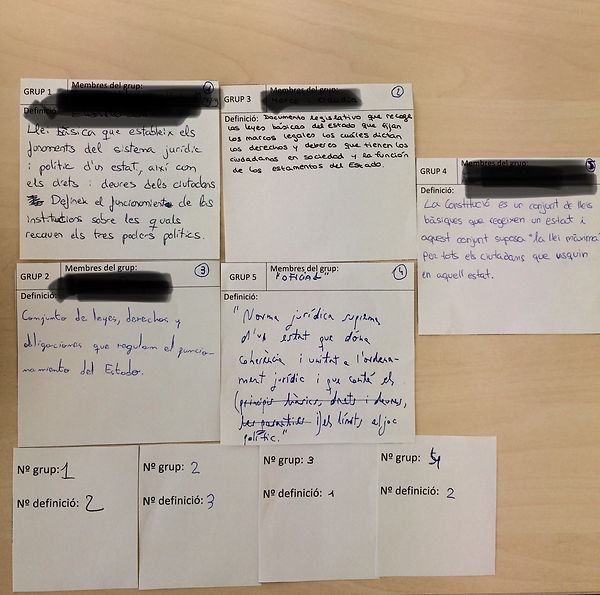 GRUP 1
Membres del grup:
1
Definició:
Llei bàsica que estableix els
fonaments del sistema jurídic
i polític d'un estat, així com
els drets i deures dels ciutadans
Definex el funcionamiento de les
institucions sobre les quals
recauen els tres poders polítics.
GRUP 3
Membres del grup:
2
Definició: Documento legislativo que recoge
las leyes básicas del estado que fijan
los marcos legales los cuáles dictan
los derechos y deberes que tienen los
ciudadanos en sociedad y la función
de los estamentos del Estado.
GRUP 4
Membres del grup:
Definició:
La Constitució es un conjunt de lleis
bàsiques que regeixen un estat i
aquest conjunt suposa "la llei màxima"
per tots els ciutadans que visquin
en aquell estat.
GRUP 2
Membres del grup:
3
Definició:
Conjunto de leyes, derechos y
obligaciones que regulan el funcio-
namiento del Estado.
GRUP 5
Membres del grup:
"OFICIAL"
4
Definició:
"Norma jurídica suprema
d'un estat que dóna
coherència i unitat a l'ordena-
ment jurídic i que conté els
(principis bàsics, drets i deures,
les garanties i) els límits al joc
polític."
Nº grup: 1
Nº definició: 2
Nº grup: 2
Nº definició: 3
Nº grup: 3
Nº definició: 1
Nº grup: 4
Nº definició: 2